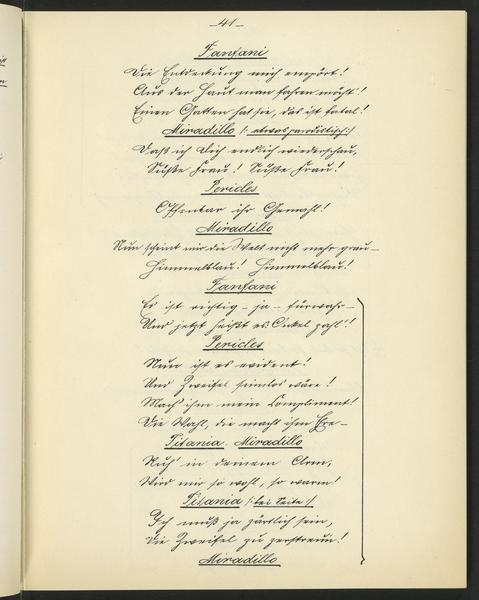 -41-
Fanfani
Die Entdeckung mich empört!
Aus der Haut man fahren möcht!
Einen Gatten hat sie, das ist fatal!
Miradillo /: etwas parodistisch :/
Daß ich Dich endlich wiederschau,
Süße Frau! Süße Frau!
Pericles
Offenbar ihr Gemahl!
Miradillo
Nun scheint mir die Welt nicht mehr grau –
Himmelblau! Himmelblau!
Fanfani
Es ist richtig – ja – fürwahr –
Und jetzt heißt es: Onkel zahl'!
Pericles
Nun ist es evident!
Und Zweifel sinnlos wäre!
Mach' ihm mein Compliment!
Die Wahl, die macht ihm Ehre –
Titania. Miradillo
Ruh' in deinem Arm,
Wird mir so wohl, so warm!
Titania /: bei Seite :/
Ich muß ja zärtlich sein,
Die Zweifel zu zerstreun!
Miradillo